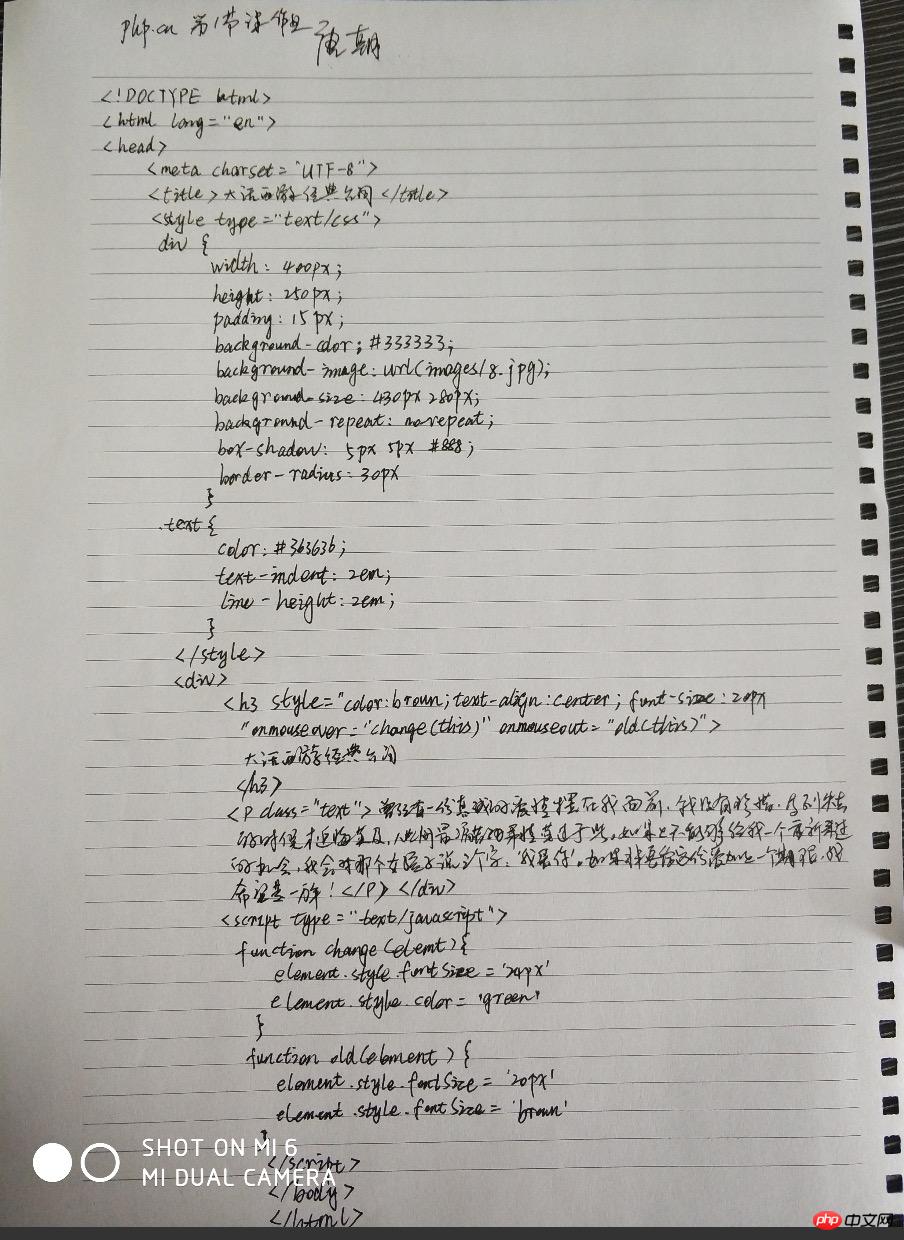 php.cn 第1节课作业 唐期
<!DOCTYPE html>
<html lang="en">
<head>
<meta charset="UTF-8">
<title>大话西游经典台词</title>
<style type="text/css">
div {
width: 400px;
height: 250px;
padding: 15px;
background-color: #333333;
background-image: url(images/8.jpg);
background-size: 430px 280px;
background-repeat: no-repeat;
box-shadow: 5px 5px #888;
border-radius: 30px
}
.text {
color: #363636;
text-indent: 2em;
line-height: 2em;
}
</style>
<div>
<h3 style="color:brown; text-align:center; font-size: 20px
"onmouseover="change(this)" onmouseout="old(this)">
大话西游经典台词
</h3>
<p class="text">曾经有一份真诚的爱情摆在我面前,我没有珍惜,
的时候才追悔莫及,人世间最痛苦的事情莫过于此。如果上天能够给我一个重新再过
的机会,我会对那个女孩子说三个字:"我爱你"。如果非要给这份爱加上一个期限,我
希望是一万年!</p></div>
<script type="text/javascript">
function change(elemt){
element.style.fontSize='24px'
element.style.color='green'
}
function old(element){
element.style.fontSize='20px'
element.style.fontSize='brown'
}
</script>
</body>
</html>
SHOT ON MI 6
MI DUAL CAMERA
php 中文网